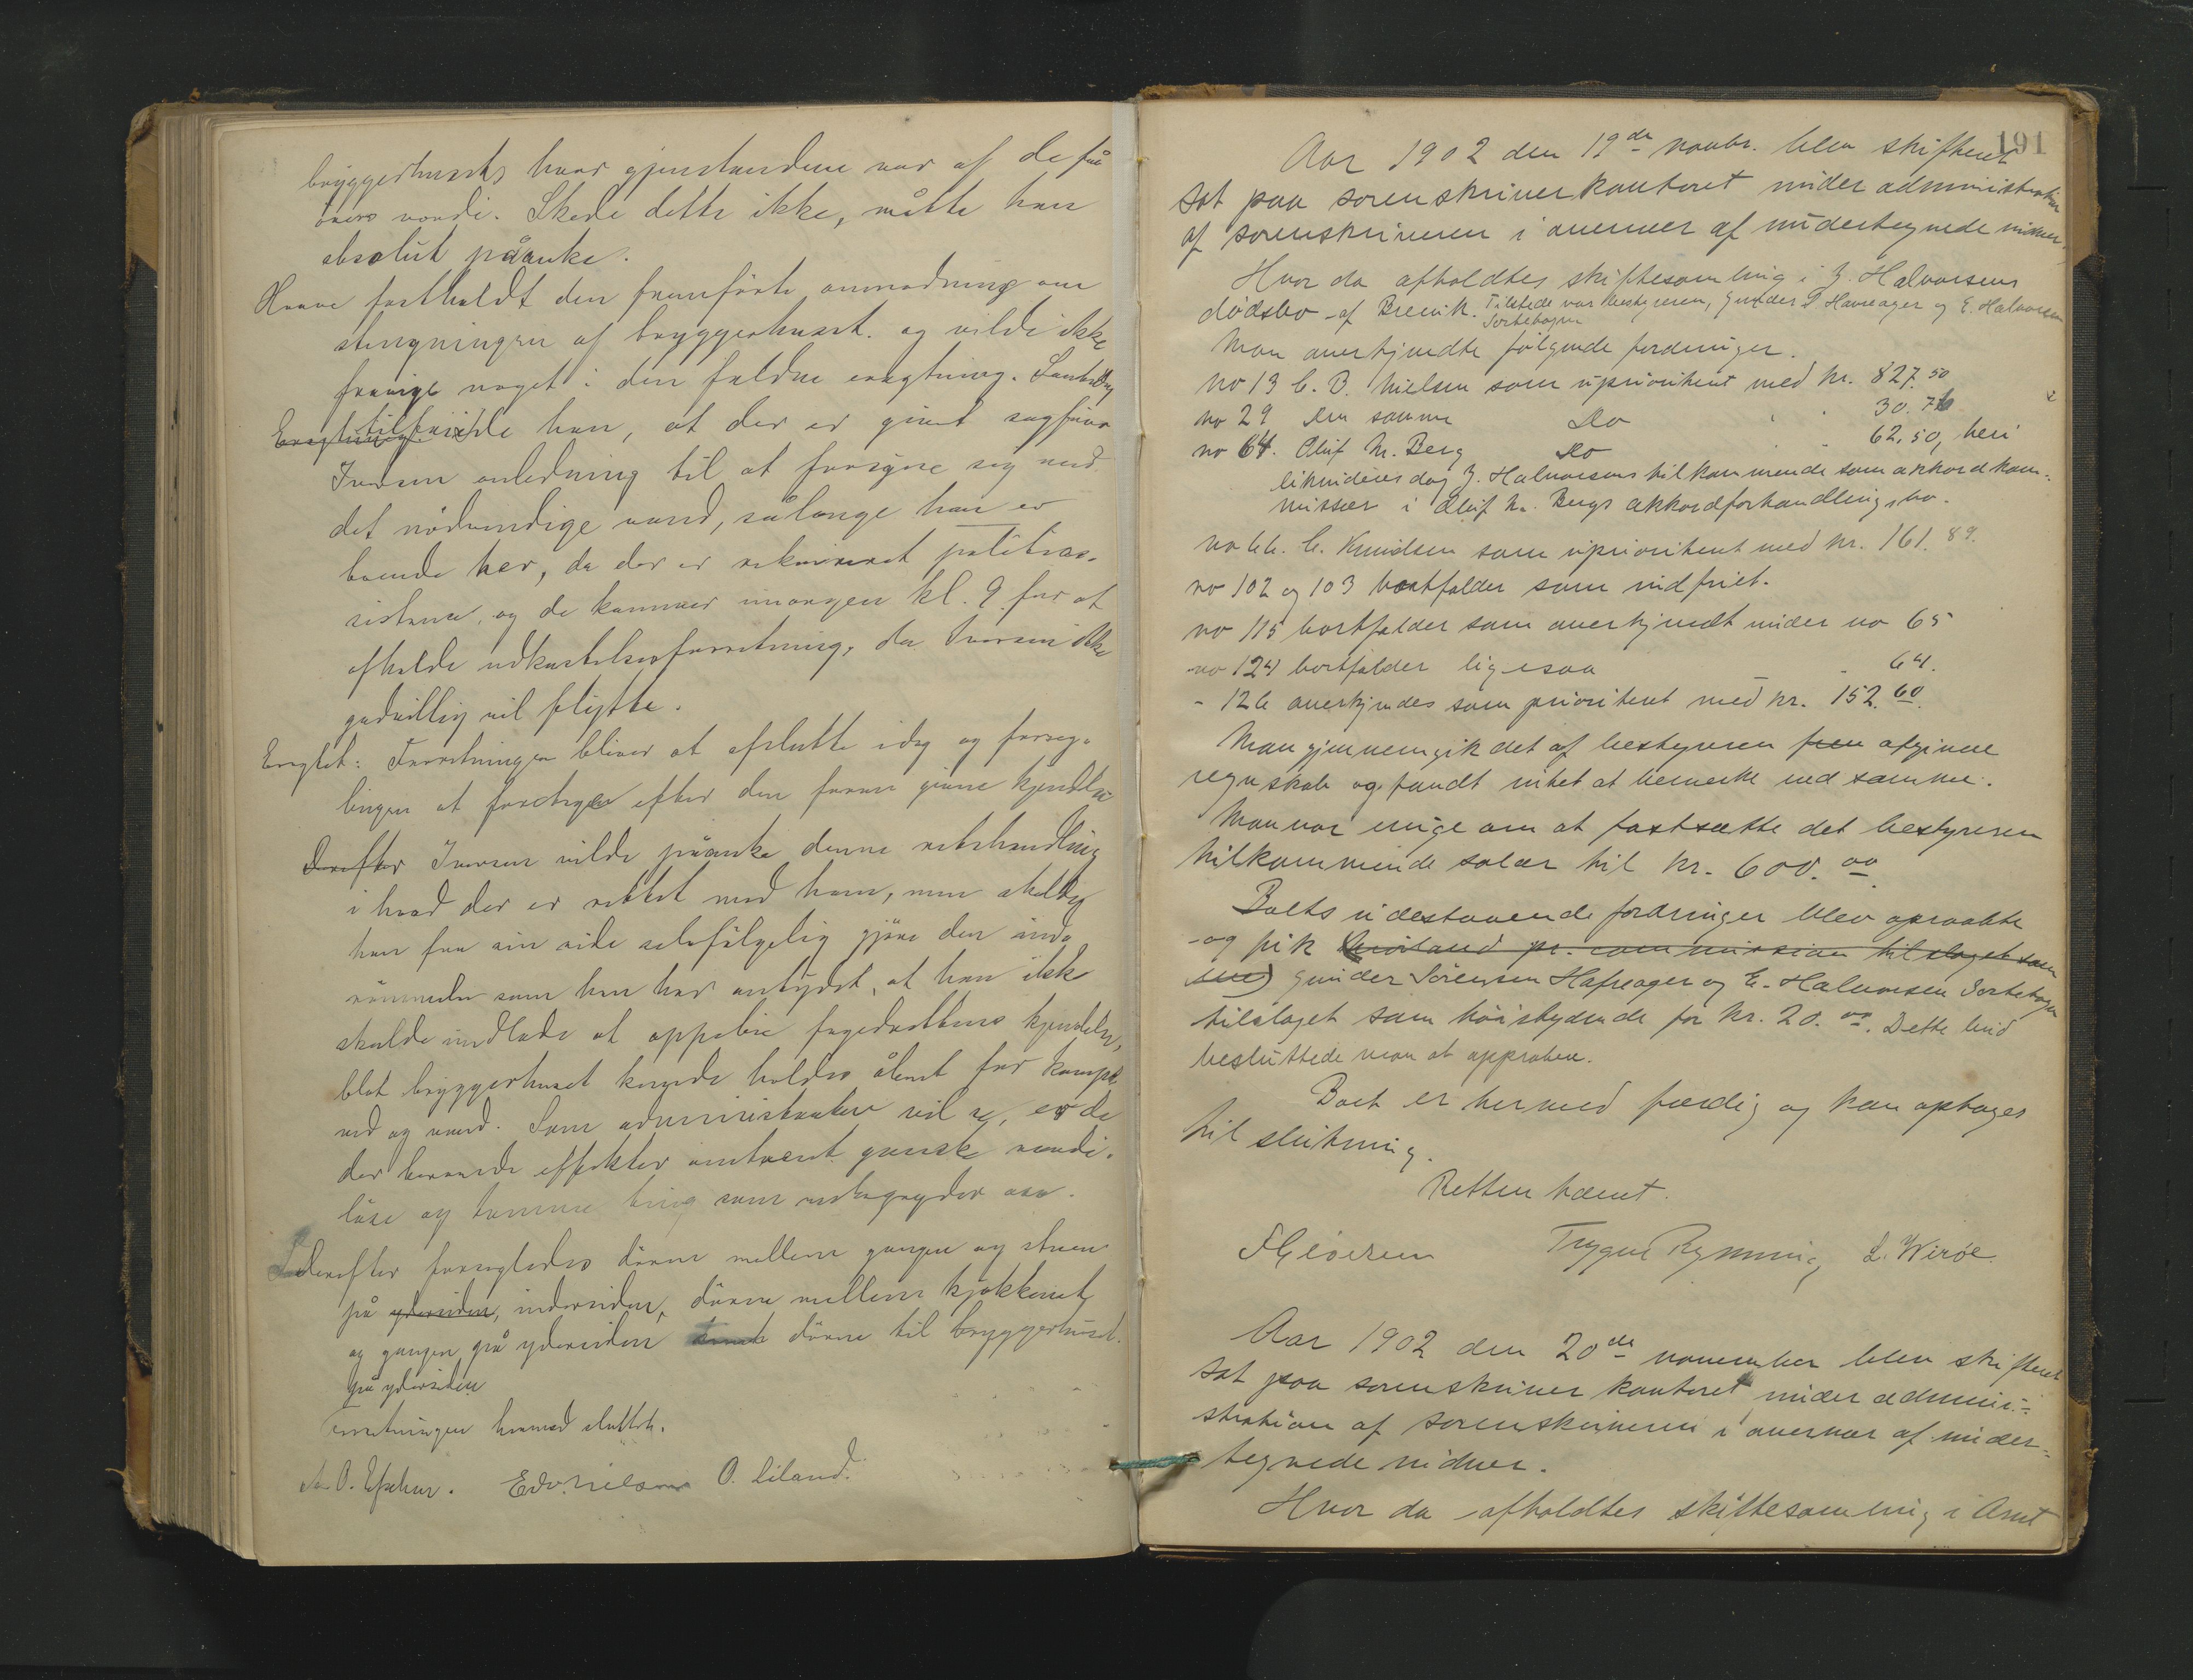 bryggerhusets hvor gjenstandene var af de få
kroners værdi. Skede dette ikke, måtte han
absolut påanke.
Haave fastholdt den fremførte anmodning om
stengningen af bryggerhuset. og vilde ikke
fravige noget i den faldne eragtning. Samtidig
tilføiede han, at der er givet sagfører
Iversen anledning til at forsyne sig med
det nødvendige vand, sålænge han er
boende her, da der er rekvireret politias-
sistance, og de kommer imorgen kl. 9 for at
afholde udkastelsesforretning, da Iversen ikke
godvillig vil flytte.
Eragtet: Forretningen bliver at afslutte idag og forseg-
lingen at foretages efter den foran givne kjendelse
Derefter Iversen vilde påanke denne retshandling
i hvad der er rettet mod ham, men
han fra sin side selvfølgelig gjøre den ind-
rømmelse som han har antydet, at han ikke
skulde indlade at appelere fogedrettens kjendelse,
blot bryggerhuset kunde holdes åbent for
ved og vand. Som administrator vil se, er de
der beroende effekter omtrent ganske værdi-
løse og tomme ting som vaskegryder osv.
Derefter forsegledes døren mellem gangen og stuen
på ydersiden, indersiden, døren mellem kjøkkenet
og gangen på ydersiden samt døren til bryggerhuset.
på ydersiden
Forretningen hermed sluttet.
Edv. Nielsen O. Liland.
191
Aar 1902 den 19de novbr. blev skifteret
sat paa sorenskriverkontoret under administration
af sorenskriveren i overvær af undertegnede vidner.
Hvor da afholdtes skiftesamling i J. Halvorsens
dødsbo af Brevik. Tilstede var bestyreren, Gunder S. Havreager og E. Halvorsen
Sortebogen
Man anerkjendte følgende fordringer.
No 13 C. B. Nielsen som uprioriteret med kr. 827.50
no 29 Den samme Do " " 30.76
no 64. Oluf N. Berg Do " " 62.50, heri
likvideres dog J. Halvorsens tilkommende som akkordkom-
missær i Oluf N. Bergs akkordforhandlingsbo.
no 66. C. Knudsen som uprioriteret med kr. 161.89.
no 102 og 103 bortfalder som indfriet.
no 115 bortfalder som anerkjendt under no 65
no 124 bortfalder ligesaa - 64.
- 126 anerkjendes som prioriteret med kr. 152.60.
Man gjennemgik det af bestyreren frem afgivne
regnskab og fandt intet at bemerke ved samme.
Man var enige om at fastsætte det bestyreren
tilkommende salær til kr. 600.00
Boets udestaaende fordringer blev opraabte
og fik Kviland pr. commission tilslaget som
Gunder Sørensen Hafreager og E. Halvorsen Sortebogen
tilslaget som høistbydende for kr. 20.00. Dette bud
besluttede man at approbere.
Boet er hermed færdig og kan optages
til slutning.
Retten hævet.
Trygve Rynning L. Wirøe
Aar 1902 den 20de november blev skifteret
sat paa sorenskriver kontoret under admini-
stration af sorenskriveren i overvær af under-
tegnede vidner.
Hvor da afholdtes skiftesamling i Arnt